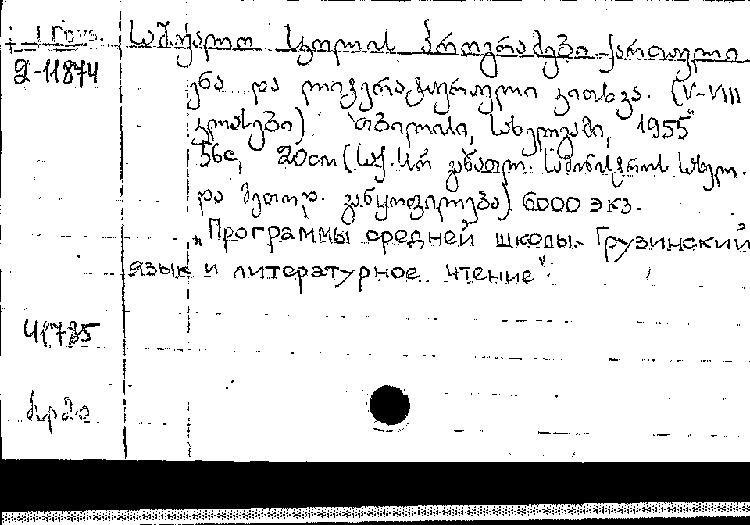 1 Груз. საშუალო სკოლის პროგრამები ქართული
2-11874 ენა და ლიტერატურული კითხვა. (V-VIII
კლასები) თბილისი, სახელგამი, 1955
56с, 20cm (საქ. სსრ განათლ. სამინისტროს სასწ.
და მეთოდ. განყოფილება) 6000 экз.
„Программы средней школы. Грузинский
язык и литературное чтение"
41785